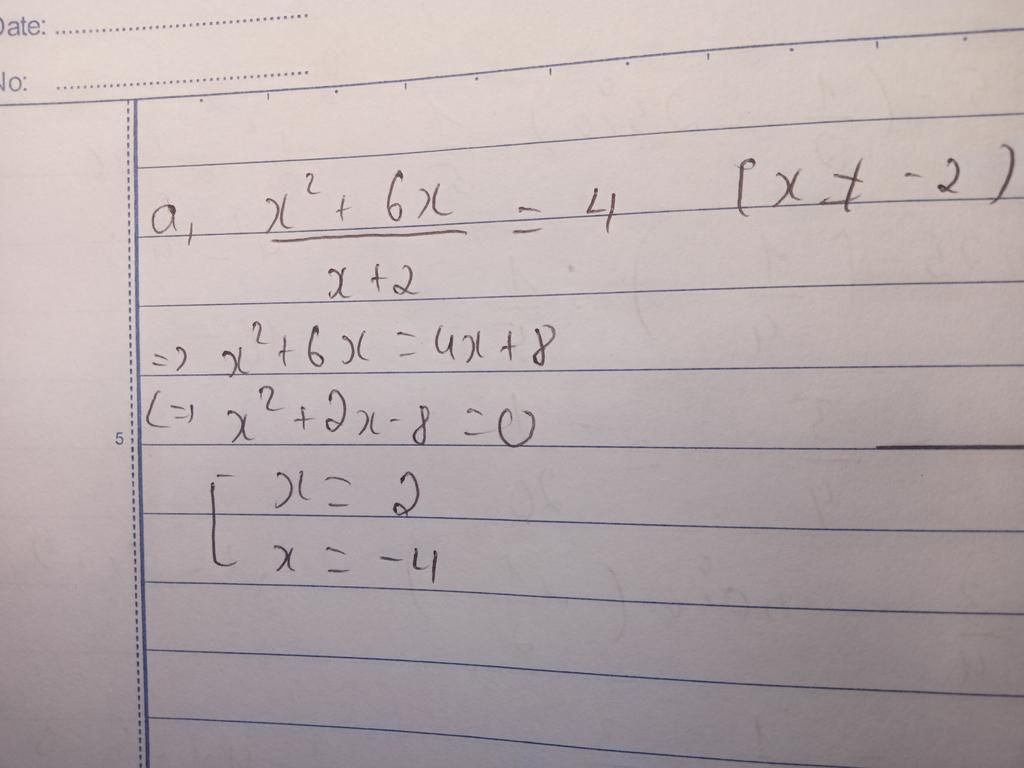 Date: ..............................
No: ..............................
a, x² + 6x / x+2 = 4 (x ≠ -2)
=> x² + 6x = 4x + 8
(=) x² + 2x - 8 = 0
5
[ x = 2
x = -4